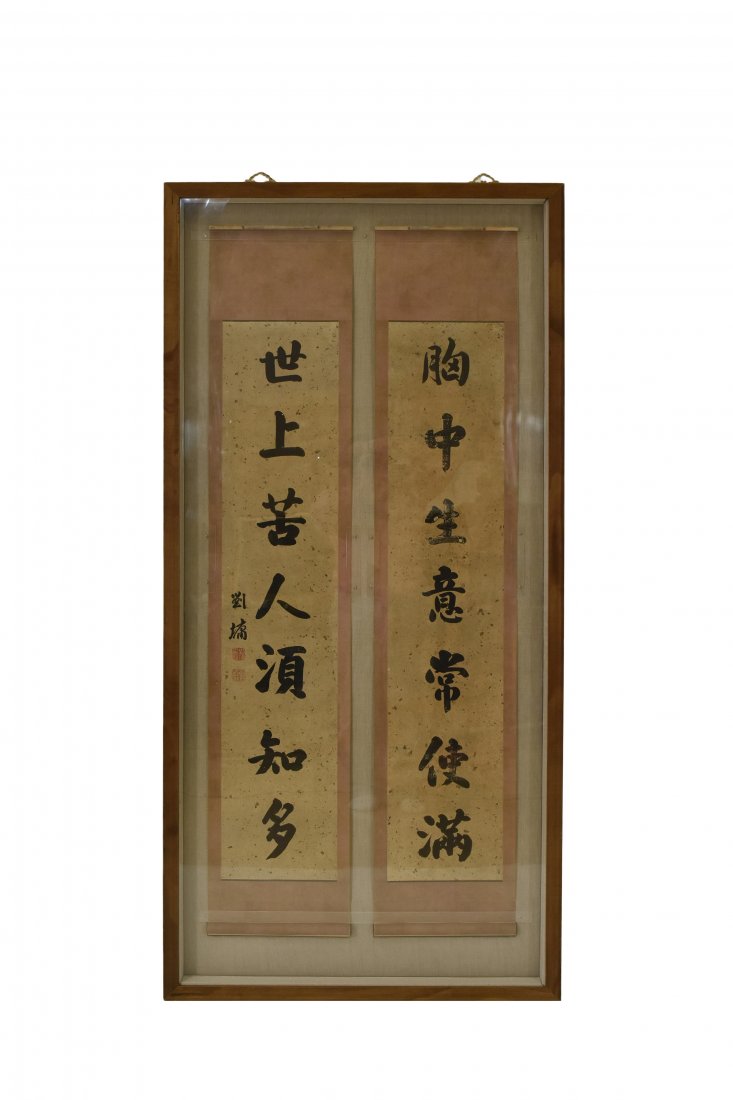 胸中生意常使滿
世上苦人須知多
劉墉